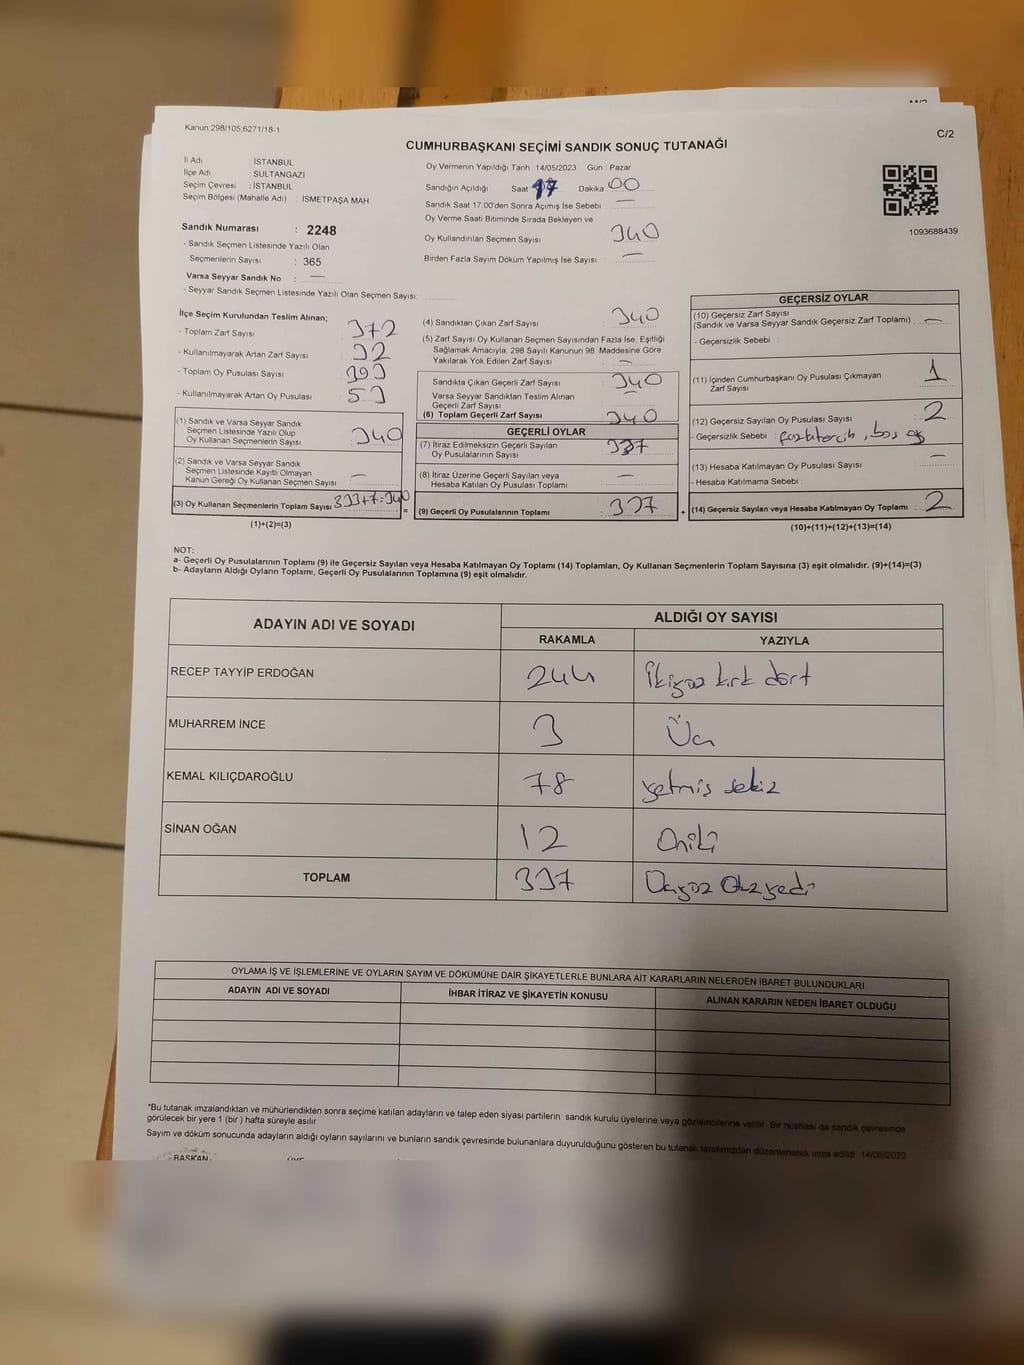 Kanun:298/105;6271/18-1
C/2
CUMHURBAŞKANI SEÇİMİ SANDIK SONUÇ TUTANAĞI
İl Adı : İSTANBUL
İlçe Adı : SULTANGAZİ
Seçim Çevresi : İSTANBUL
Seçim Bölgesi (Mahalle Adı) : İSMETPAŞA MAH
Sandık Numarası : 2248
- Sandık Seçmen Listesinde Yazılı Olan
Seçmenlerin Sayısı : 365
Varsa Seyyar Sandık No : —
- Seyyar Sandık Seçmen Listesinde Yazılı Olan Seçmen Sayısı:
Oy Vermenin Yapıldığı Tarih : 14/05/2023 Gün : Pazar
Sandığın Açıldığı Saat 17 Dakika 00
Sandık Saat 17.00'den Sonra Açımış İse Sebebi : —
Oy Verme Saati Bitiminde Sırada Bekleyen ve
Oy Kullandırılan Seçmen Sayısı : 340
Birden Fazla Sayım Döküm Yapılmış İse Sayısı : —
1093688439
İlçe Seçim Kurulundan Teslim Alınan;
- Toplam Zarf Sayısı 372
- Kullanılmayarak Artan Zarf Sayısı 32
- Toplam Oy Pusulası Sayısı 393
- Kullanılmayarak Artan Oy Pusulası 53
(1) Sandık ve Varsa Seyyar Sandık
Seçmen Listesinde Yazılı Olup
Oy Kullanan Seçmenlerin Sayısı : 340
(2) Sandık ve Varsa Seyyar Sandık
Seçmen Listesinde Kayıtlı Olmayan
Kanun Gereği Oy Kullanan Seçmen Sayısı : —
(3) Oy Kullanan Seçmenlerin Toplam Sayısı : 333+7=340
(1)+(2)=(3)
(4) Sandıktan Çıkan Zarf Sayısı : 340
(5) Zarf Sayısı Oy Kullanan Seçmen Sayısından Fazla İse, Eşitliği
Sağlamak Amacıyla, 298 Sayılı Kanunun 98. Maddesine Göre
Yakılarak Yok Edilen Zarf Sayısı : —
Sandıkta Çıkan Geçerli Zarf Sayısı : 340
Varsa Seyyar Sandıktan Teslim Alınan
Geçerli Zarf Sayısı :
(6) Toplam Geçerli Zarf Sayısı : 340
GEÇERLİ OYLAR
(7) İtiraz Edilmeksizin Geçerli Sayılan
Oy Pusulalarının Sayısı : 337
(8) İtiraz Üzerine Geçerli Sayılan veya
Hesaba Katılan Oy Pusulası Toplamı : —
(9) Geçerli Oy Pusulalarının Toplamı : 337
GEÇERSİZ OYLAR
(10) Geçersiz Zarf Sayısı
(Sandık ve Varsa Seyyar Sandık Geçersiz Zarf Toplamı) : —
- Geçersizlik Sebebi :
(11) İçinden Cumhurbaşkanı Oy Pusulası Çıkmayan
Zarf Sayısı : 1
(12) Geçersiz Sayılan Oy Pusulası Sayısı : 2
- Geçersizlik Sebebi : fazla tercih, boş oy
(13) Hesaba Katılmayan Oy Pusulası Sayısı : —
- Hesaba Katılmama Sebebi :
(14) Geçersiz Sayılan veya Hesaba Katılmayan Oy Toplamı : 2
(10)+(11)+(12)+(13)=(14)
NOT:
a- Geçerli Oy Pusulalarının Toplamı (9) ile Geçersiz Sayılan veya Hesaba Katılmayan Oy Toplamı (14) Toplamları, Oy Kullanan Seçmenlerin Toplam Sayısına (3) eşit olmalıdır. (9)+(14)=(3)
b- Adayların Aldığı Oyların Toplamı, Geçerli Oy Pusulalarının Toplamına (9) eşit olmalıdır.
ADAYIN ADI VE SOYADI
ALDIĞI OY SAYISI
RAKAMLA YAZIYLA
RECEP TAYYİP ERDOĞAN 244 İkiyüz kırk dört
MUHARREM İNCE 3 Üç
KEMAL KILIÇDAROĞLU 78 yetmiş sekiz
SİNAN OĞAN 12 Oniki
TOPLAM 337 Üçyüz Otuzyedi
OYLAMA İŞ VE İŞLEMLERİNE VE OYLARIN SAYIM VE DÖKÜMÜNE DAİR ŞİKAYETLERLE BUNLARA AİT KARARLARIN NELERDEN İBARET BULUNDUKLARI
ADAYIN ADI VE SOYADI İHBAR İTİRAZ VE ŞİKAYETİN KONUSU ALINAN KARARIN NEDEN İBARET OLDUĞU
*Bu tutanak imzalandıktan ve mühürlendikten sonra seçime katılan adayların ve talep eden siyasi partilerin sandık kurulu üyelerine veya gözlemcilerine verilir. Bir nüshası da sandık çevresinde
görülecek bir yere 1 (bir) hafta süreyle asılır.
Sayım ve döküm sonucunda adayların aldığı oyların sayılarını ve bunların sandık çevresinde bulunanlara duyurulduğunu gösteren bu tutanak tarafımızdan düzenlenerek imza edildi. 14/05/2023
BAŞKAN ÜYE